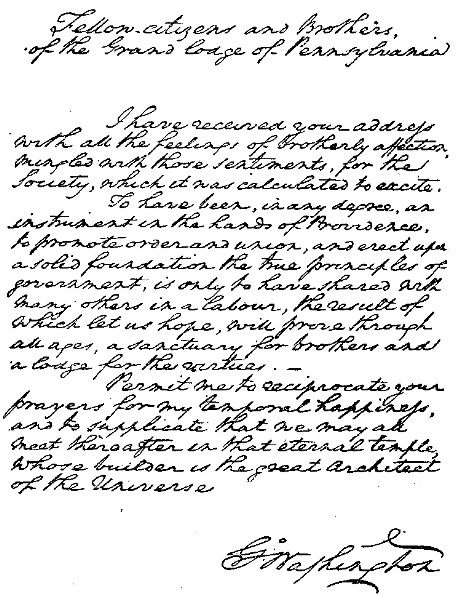 Fellow-citizens and Brothers,
of the Grand lodge of Pennsylvania
I have received your address
with all the feelings of brotherly affection,
mingled with those sentiments, for the
Society, which it was calculated to excite.
To have been, in any degree, an
instrument in the hands of Providence,
to promote order and union, and erect upon
a solid foundation the true principles of
government, is only to have shared with
many others in a labour, the result of
which let us hope, will prove through
all ages, a sanctuary for brothers and
a lodge for the virtues. —
Permit me to reciprocate your
prayers for my temporal happiness,
and to supplicate that we may all
meet thereafter in that eternal temple,
whose builder is the great Architect
of the Universe
Go Washington